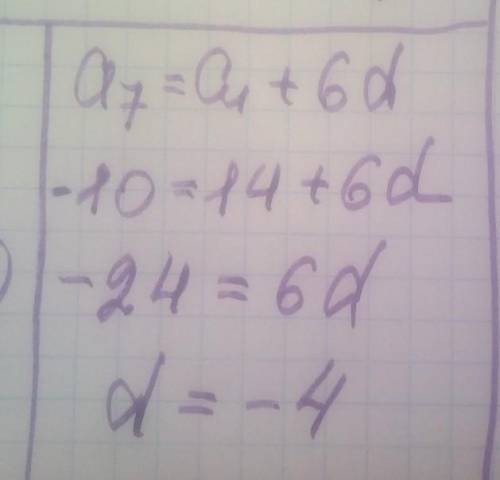 a₇ = a₁ + 6d
-10 = 14 + 6d
-24 = 6d
d = -4